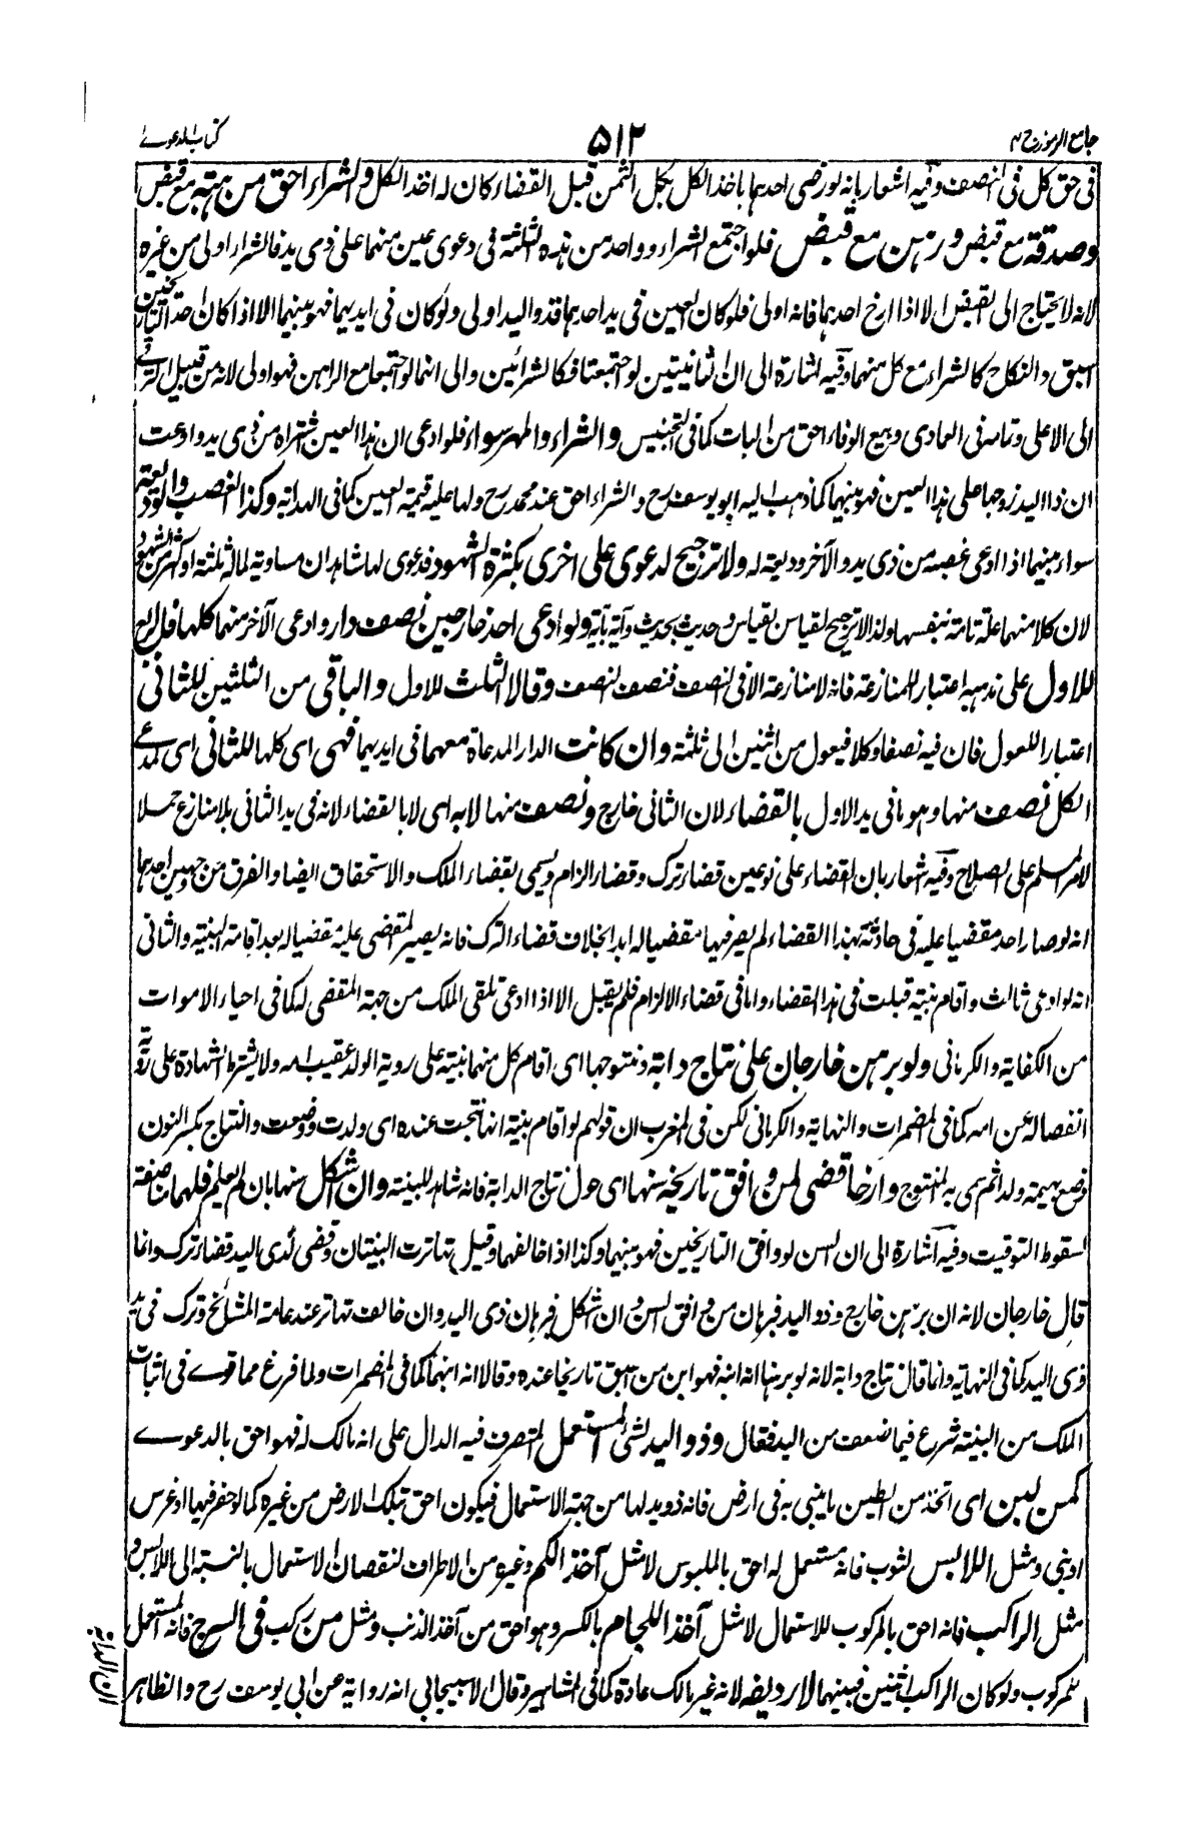 جامع الرموز ج ٢
٥١٢
کتاب الدعوے
فی حق کل فی النصف وفیه اشعار بانه لو رضی احدهما باخذ الکل بکل الثمن قبل القضاء کان له اخذ الکل والشراء احق من هبة مع قبض
وصدقة مع قبض ورهن مع قبض فلو اجتمع الشراء وواحد من هذه الثلثة فی دعوی عین منهما علی ذی ید فالشراء اولی من غیره
لانه لا یحتاج الی القبض الا اذا ارخ احدهما فانه اولی فلو کان العین فی ید احدهما فذو الید اولی ولو کان فی ایدیهما فهو بینهما الا اذا کان احد التاریخین
اسبق والنکاح کالشراء مع کل منهما وفیه اشارة الی ان الثانیتین لو اجتمعتا فکالشرائین والی انهما لو اجتمعا مع الراهن فهو اولی لانه من قبیل الترقی
الی الاعلی وتمامه فی العمادی وبیع الوفاء احق من البات کما فی التجنیس والشراء والمهر سواء فلو ادعی ان هذا العین شتراه من ذی ید وادعت
ان ذا الید زوجها علی هذا العین فهو بینهما کما ذهب الیه ابو یوسف رح والشراء احق عند محمد رح ولها علیه قیمة العین کما فی الهدایه وکذا الغصب والودیعة
سواء بینهما اذا ادعی غصبه من ذی ید والآخر ودیعة له ولا ترجیح لدعوی علی اخری بکثرة الشهود فدعوی لها شاهدان مساویة لما له ثلثة او اکثر من الشهود
لان کلا منهما علة تامة بنفسها ولذا لا ترجیح لقیاس بقیاس وحدیث بحدیث وآیة بآیة ولو ادعی احد خارجین نصف دار وادعی الآخر منهما کلها فالربع
للاول علی مذهبه اعتبارا للمنازعة فانه لا منازعة الا فی النصف فنصف لنصف وقالا الثلث للاول والباقی من الثلثین للثانی
اعتبارا للعول فان فیه نصفا وکلا فیعول من اثنین الی ثلثة وان کانت الدار المدعاة معهما فی ایدیهما فهی ای کلها للثانی ای مدعی
الکل نصف منها وهو ما فی ید الاول بالقضاء لان الثانی خارج ونصف منها لا به ای لا بالقضاء لانه فی ید الثانی بلا منازع حملا
لامر المسلم علی الصلاح وفیه اشعار بان القضاء علی نوعین قضاء ترک وقضاء الزام ویسمی بقضاء الملک والاستحقاق ایضا والفرق من وجهین احدهما
انه لو صار احد مقضیا علیه فی حادثة بهذا القضاء لم یصر فیها مقضیا له ابدا بخلاف قضاء الترک فانه یصیر المقضی علیه مقضیا له بعد اقامة البینة والثانی
انه لو ادعی ثالث واقام بینة قبلت فی هذا القضاء واما فی قضاء الالزام فلم یقبل الا اذا ادعی تلقی الملک من جهة المقضی له کما فی احیاء الاموات
من الکفایه والکرمانی ولو برهن خارجان علی نتاج دابة ونتوجها ای اقام کل منهما بینة علی رویة الولد عقیب امه ولا یشترط الشهادة علی رویة
انفصاله عن امه کما فی المضمرات والنهایه والکرمانی لکن فی المغرب ان قولهم لو اقام بینة انها نتجت عنده ای ولدت ووضعت والنتاج بکسر النون
وضع بهیمة ولدا ثم سمی به المنتوج وارخا قضی لمن وافق تاریخه سنها ای حول نتاج الدابة فانه شاهد للبینه وان اشکل سنها بان لم یعلم فلهما مناصفة
لسقوط التوقیت وفیه اشارة الی ان السن لو وافق التاریخین فهو بینهما وکذا اذا خالفهما وقیل تهاترت البینتان وقضی لذی الید قضاء ترک وانما
قال خارجان لانه ان برهن خارج وذو الید فبرهان من وافق السن وان اشکل فبرهان ذی الید وان خالف تهاتر عند عامة المشائخ وترک فی ید
ذی الید کما فی النهایه وانما قال نتاج دابة لانه لو برهنا انه ابنه فهو ابن من اسبق تاریخا عنده وقالا انه ابنهما کما فی المضمرات ولما فرغ مما قوے فی اثبات
الملک من البینه شرع فیما ضعف من الید فقال وذو الید لشئ المستعمل المتصرف فیه الدال علی انه مالک له فهو احق بالدعوے
کمن لبن ای اتخذ من الطین ما یبنی به فی ارض فانه ذو ید لها من جهة الاستعمال فیکون احق بتلک الارض من غیره کما لو حفر فیها او غرس
او بنی ومثل اللابس لثوب فانه مستعمل له احق بالملبوس لا مثل آخذ الکم وغیره من الاطراف لنقصان الاستعمال بالنسبة الی اللابس و
مثل الراکب فانه احق بالمرکوب للاستعمال لا مثل آخذ اللجام بالکسر وهو احق من آخذ الذنب ومثل من رکب فی السرج فانه المستعمل
للمرکوب ولو کان الراکب اثنین فبینهما لا ردیفه لانه غیر مالک عادة کما فی المشاهیر وقال الاسبیجابی انه روایة عن ابی یوسف رح والظاهر
ان الدابة